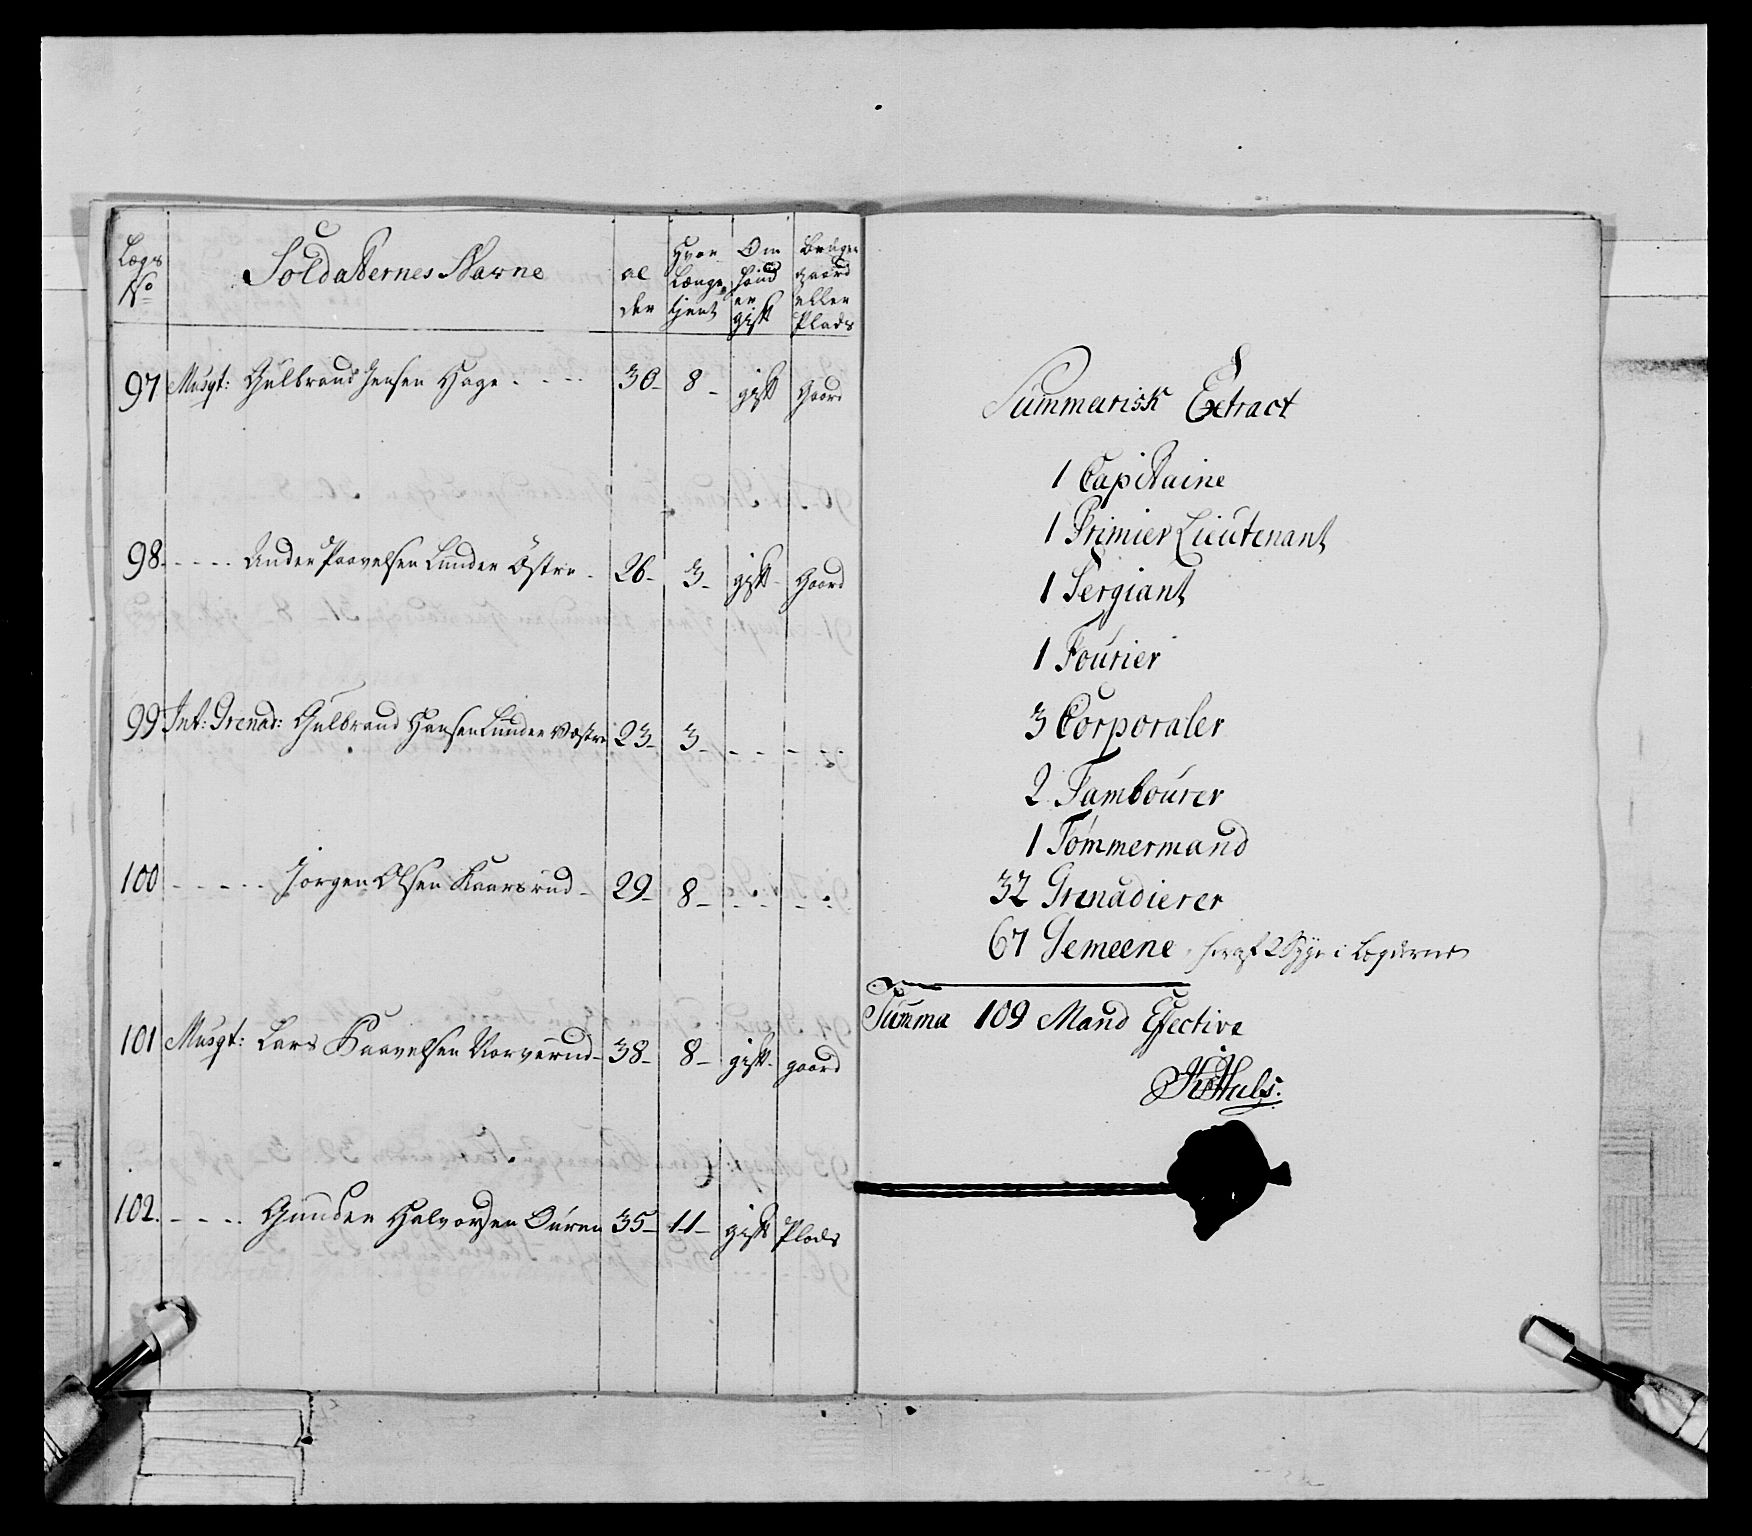 Lægs No
Soldatternes Navne
al der
Hvor Længe tjent
Om hand er gift
Bruger gaard eller Plads
97 Musqt: Gulbrand Jensen Hage - - - - 30- 8- gift Gaard
98. - - - - Ander Paavelsen Lunder Östre - 26- 3- gift- Gaard
99 Int: Grenad: Gulbrand Hansen Lunder Væstre 23- 3- - - - -
100 - - - - - Jorgen Olsen Kaarsrud - 29- 8- - - - -
101 Musqt: Lars Paavelsen - 38- 8- gift- gaard
102. - - - - Gunder Halvorsen 35- 11- gift Plads
Summarisk Extract
1 Capitaine
1 Primier Lieutenant
1 Sergiant
1 Fourier
3 Corporaler
2 Tambourer
1 Tømmermand
32 Grenadierer
67 Gemeene, heraf 2 Syge i Lægderne
Summa 109 Mand Effective